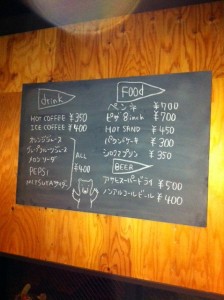 drink
HOT COFFEE ¥350
ICE COFFEE ¥400
オレンジジュース
グレープフルーツジュース
メロンソーダ
PEPSI
MITSUYAサイダー
ALL
¥400
Food
ペンネ ¥700
ピザ 8inch ¥700
HOT SAND ¥450
パウンドケーキ ¥300
シロッププリン ¥350
BEER
アサヒスーパードライ ¥500
ノンアルコールビール ¥400